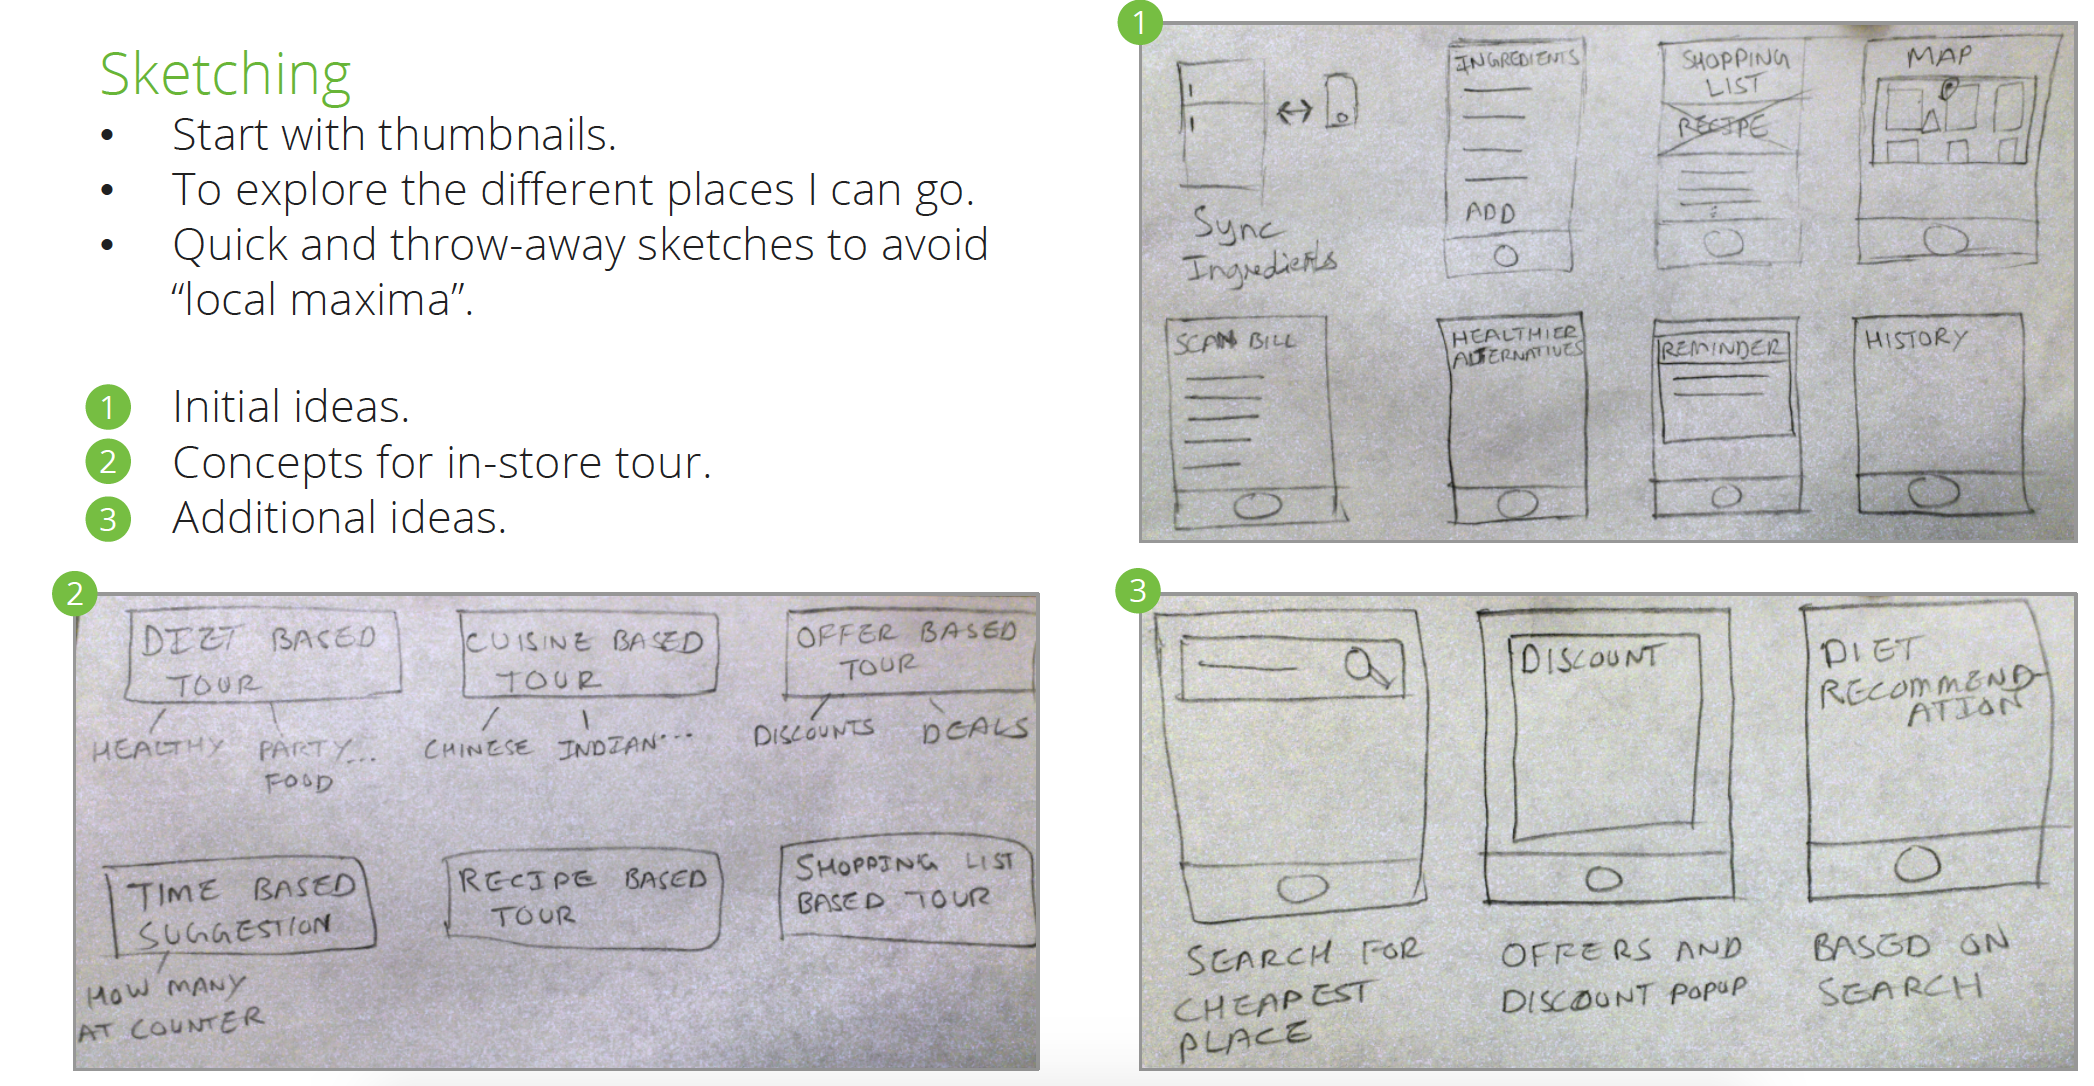 Sketching
• Start with thumbnails.
• To explore the different places I can go.
• Quick and throw-away sketches to avoid
“local maxima”.
1 Initial ideas.
2 Concepts for in-store tour.
3 Additional ideas.
1
Sync
Ingredients
INGREDIENTS
ADD
SHOPPING
LIST
RECIPE
MAP
SCAN BILL
HEALTHIER
ALTERNATIVES
REMINDER
HISTORY
2
DIET BASED
TOUR
HEALTHY
PARTY...
FOOD
CUISINE BASED
TOUR
CHINESE INDIAN...
OFFER BASED
TOUR
DISCOUNTS
DEALS
TIME BASED
SUGGESTION
HOW MANY
AT COUNTER
RECIPE BASED
TOUR
SHOPPING LIST
BASED TOUR
3
SEARCH FOR
CHEAPEST
PLACE
DISCOUNT
OFFERS AND
DISCOUNT POPUP
DIET
RECOMMEND-
ATION
BASED ON
SEARCH